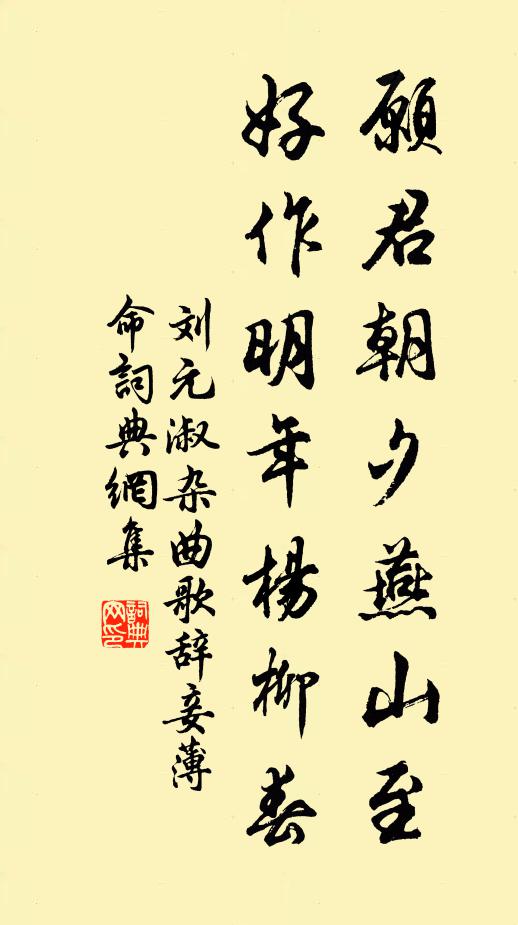 願君朝夕燕山至
好作明年楊柳春
刘元淑杂曲歌辞妾薄
命詞典網集
詞典
网印